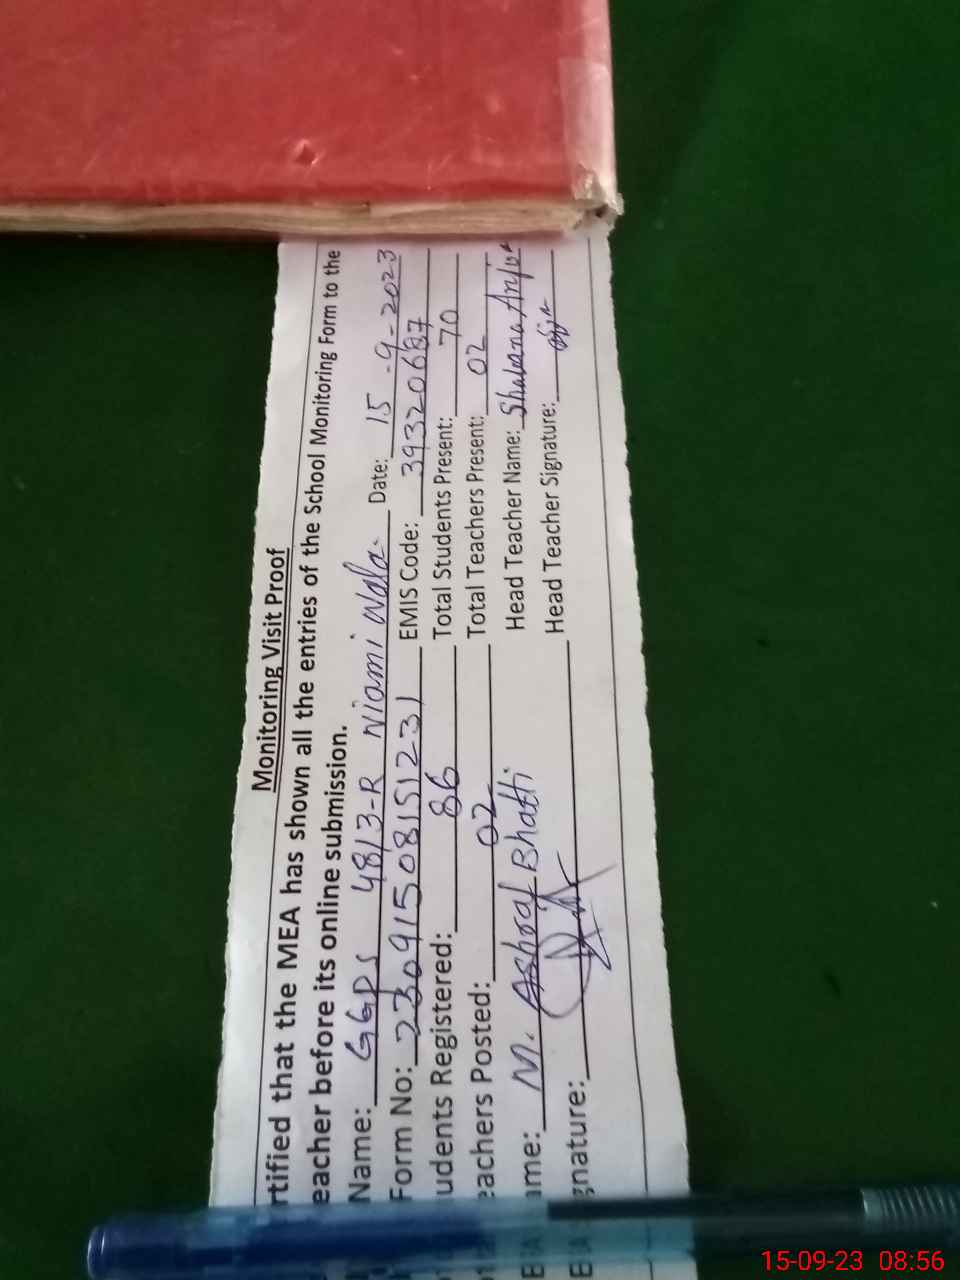 Monitoring Visit Proof
rtified that the MEA has shown all the entries of the School Monitoring Form to the
eacher before its online submission.
Name: GGPS 48/3-R Niami Wala Date: 15-9-2023
Form No: 23091508151231 EMIS Code: 39320687
udents Registered: 86 Total Students Present: 70
eachers Posted: 02 Total Teachers Present: 02
ame: M. Ashraf Bhatti Head Teacher Name: Shabana Anjum
gnature: Head Teacher Signature:
15-09-23 08:56